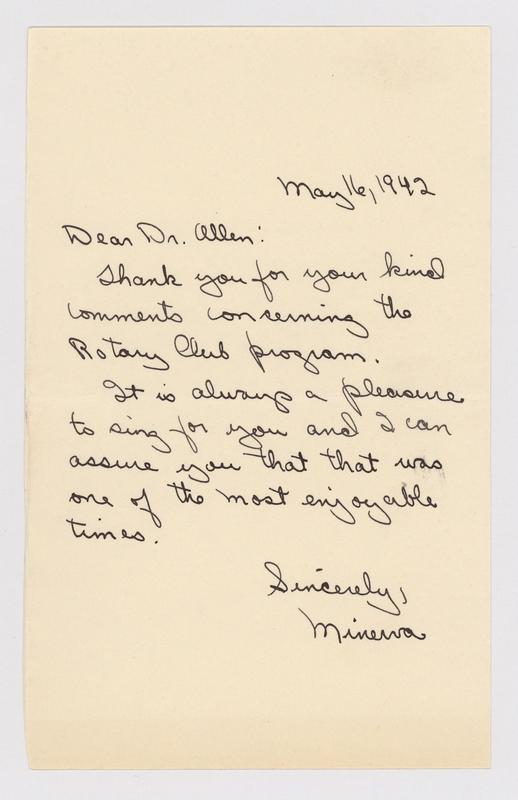 May 16, 1942
Dear Dr. Allen:
Thank you for your kind
comments concerning the
Rotary Club program.
It is always a pleasure
to sing for you and I can
assure you that that was
one of the most enjoyable
times.
Sincerely,
Minerva